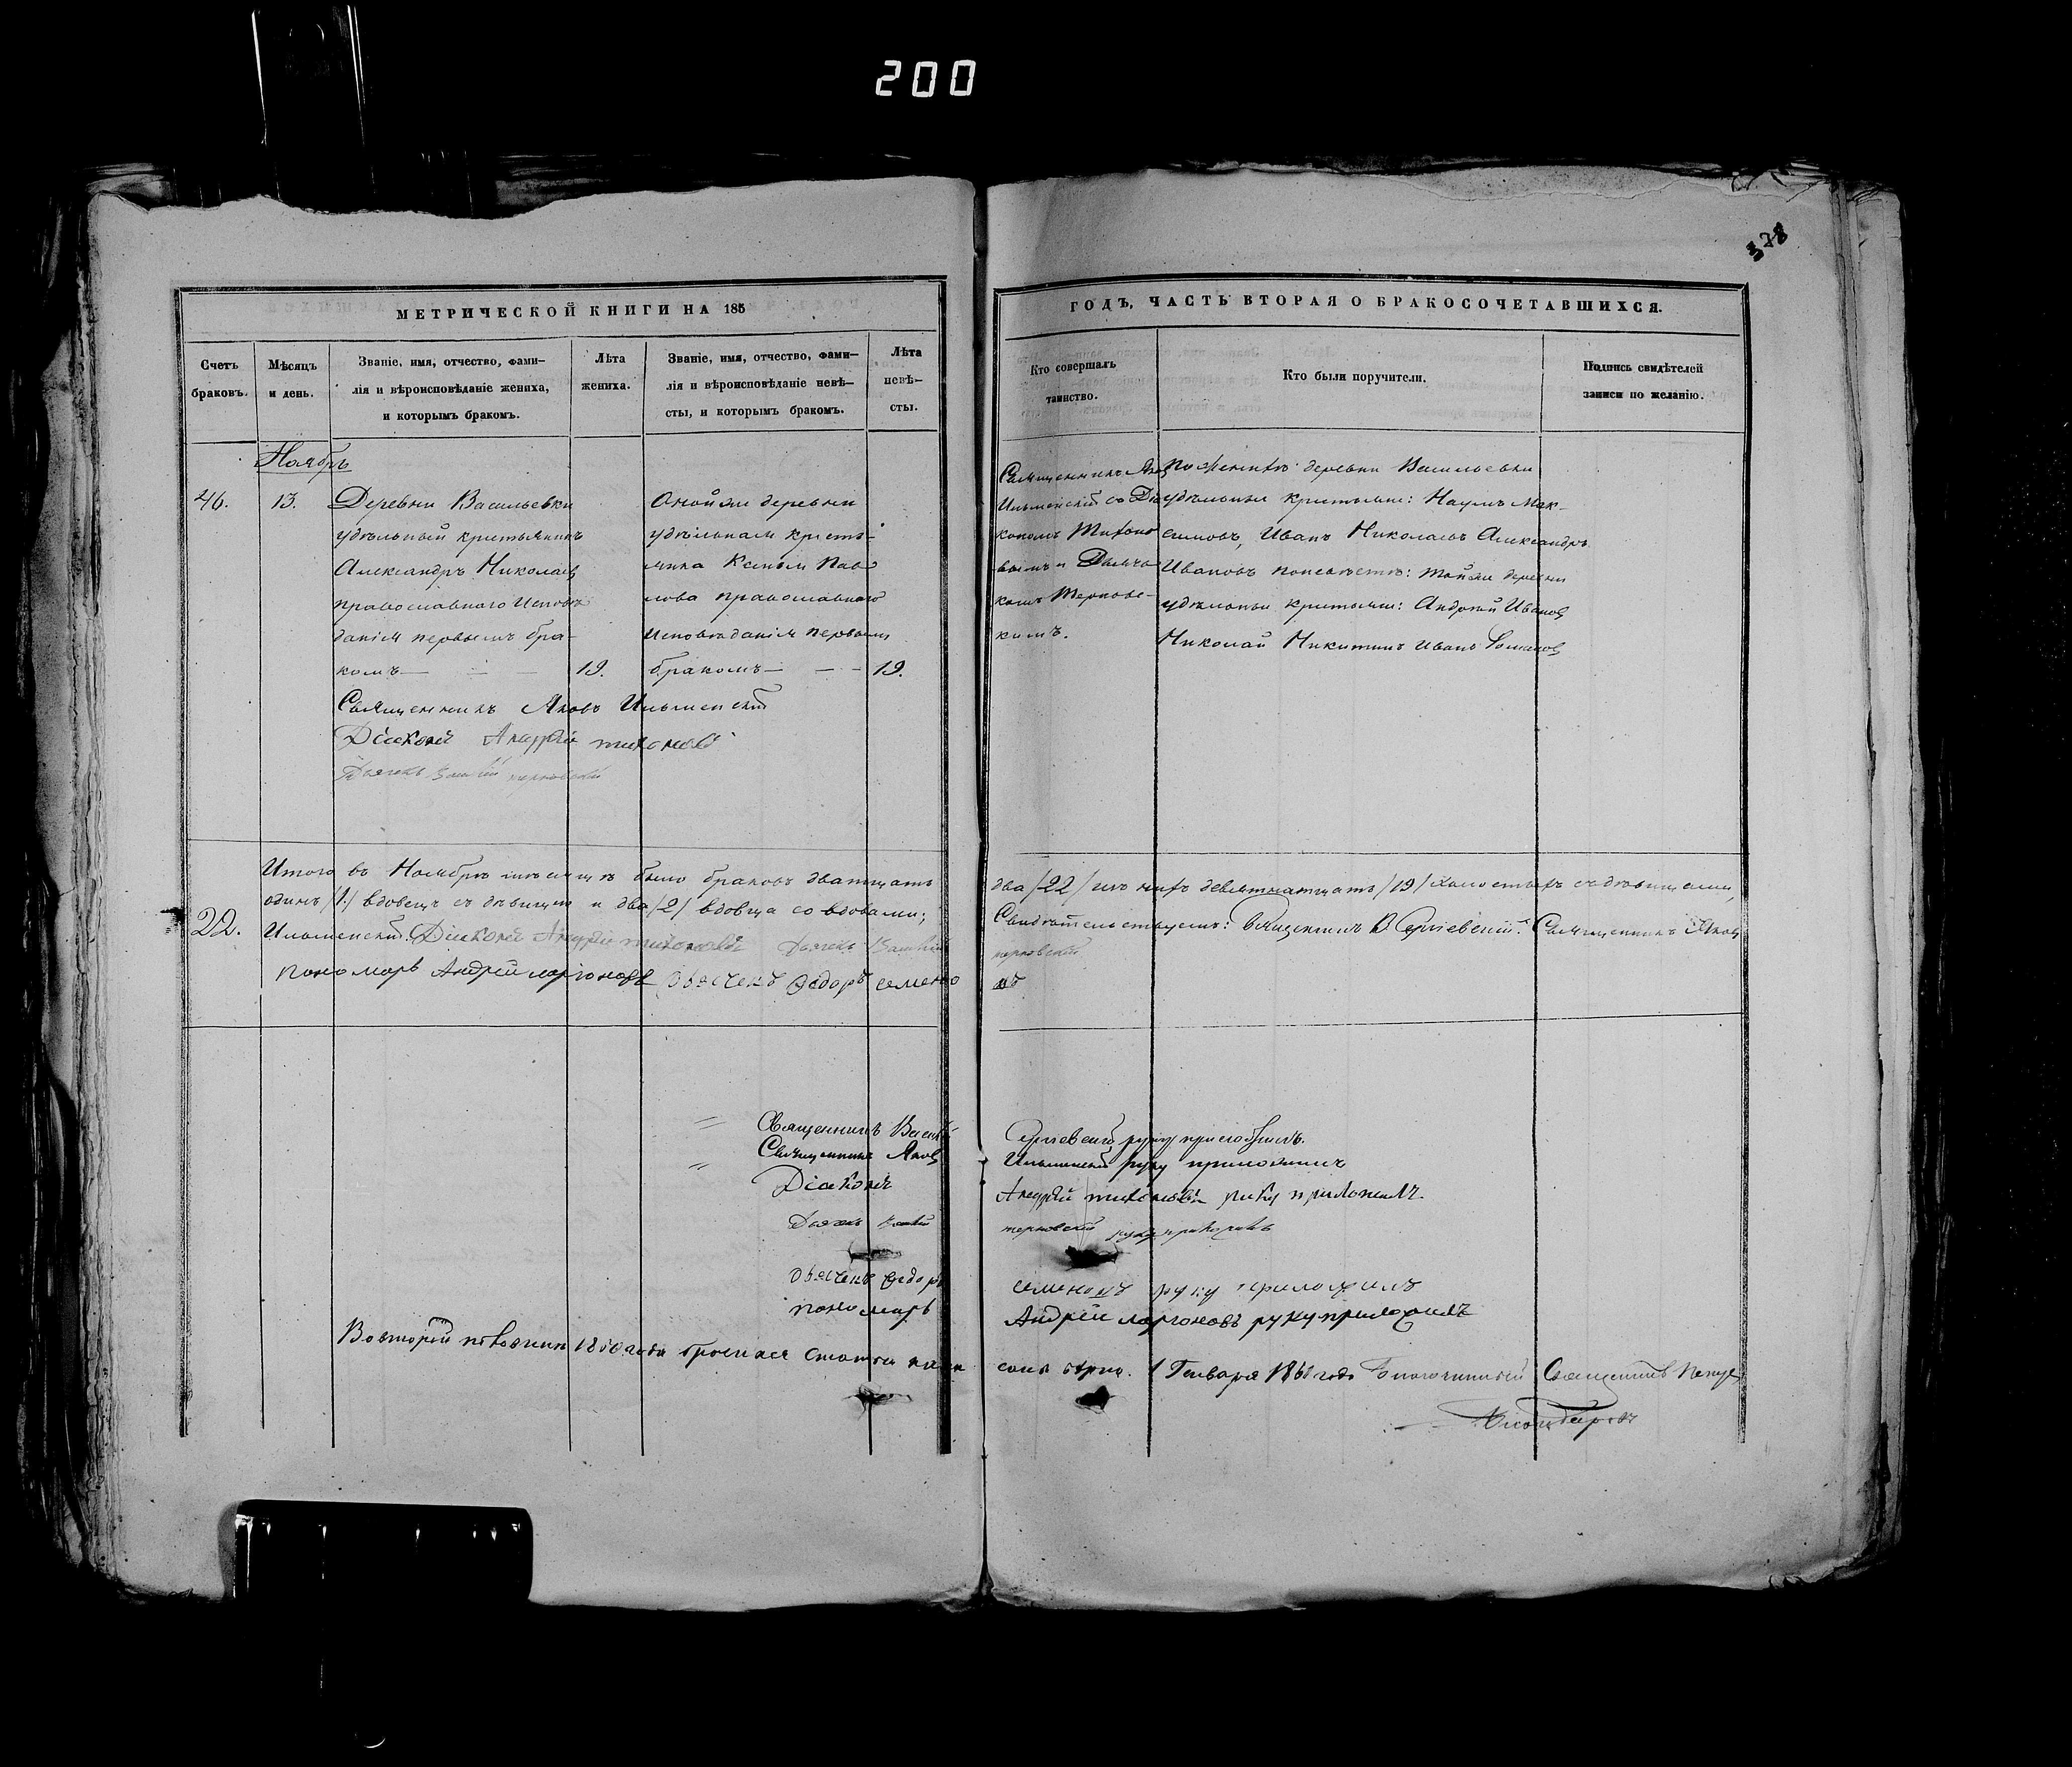 200
328
МЕТРИЧЕСКОЙ КНИГИ НА 185
ГОДЪ, ЧАСТЬ ВТОРАЯ О БРАКОСОЧЕТАВШИХСЯ.
Счетъ браковъ.
Мѣсяцъ и день.
Званіе, имя, отчество, фами-
лія и вѣроисповѣданіе жениха,
и которымъ бракомъ.
Лѣта жениха.
Званіе, имя, отчество, фами-
лія и вѣроисповѣданіе невѣ-
сты, и которымъ бракомъ.
Лѣта невѣ-
сты.
Кто совершалъ
таинство.
Кто были поручители.
Подпись свидѣтелей
записи по желанію.
Ноябрь
46.
13.
Деревни Васильевки
удѣльный крестьянинъ
Александръ Николаевъ
православнаго исповѣ
данія первымъ бра-
комъ — 19.
Оной же деревни
удѣльная кресть-
янка Ксенія Пав
лова православнаго
исповѣданія первымъ
бракомъ — 19.
Священникъ Яковъ
Ильменскій со Діа
кономъ Тихоно
вымъ и Дьячко
комъ Терновс-
кимъ.
По женихѣ: деревни Васильевки
удѣльные крестьяне: Наумъ Мак-
симовъ, Иванъ Николаевъ Александръ
Ивановъ по невѣстѣ: той же деревни
удѣльные крестьяне: Андрей Ивановъ
Николай Никитинъ Иванъ Романовъ
Священникъ Яковъ Ильменскій
Діаконъ Андрей Тихоновъ
Дьячекъ Василій Терновскій
22.
Итого въ Ноябрѣ мѣсяцѣ было браковъ дватцать
два /22/ изъ нихъ девятнатцать /19/ холостыхъ съ дѣвицами,
одинъ /1/ вдовецъ съ дѣвицею и два /2/ вдовца со вдовами;
Свидѣтельствуемъ: Священникъ В. Сергіевскій. Священникъ Яковъ
Ильменскій. Діаконъ Андрей Тихоновъ Дьячекъ Василій
Терновскій
пономарь Андрей Ларіоновъ Дьячекъ Ѳедоръ Семено
въ
Священникъ Василій Сергіевскій руку приложилъ.
Священникъ Яковъ Ильменскій руку приложилъ
Діаконъ Андрей Тихоновъ руку приложилъ.
Дьячекъ Василій Терновскій руку приложилъ
Дьячекъ Ѳедоръ Семеновъ руку приложилъ
пономарь Андрей Ларіоновъ руку приложилъ
Во второй половинѣ 1860 года
сана вѣрно. 1 Генваря 1861 года Благочинный Священникъ Петръ